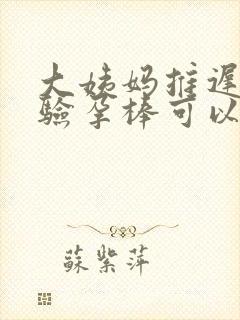 大姨妈推迟
验孕棒可以
蘇紫萍